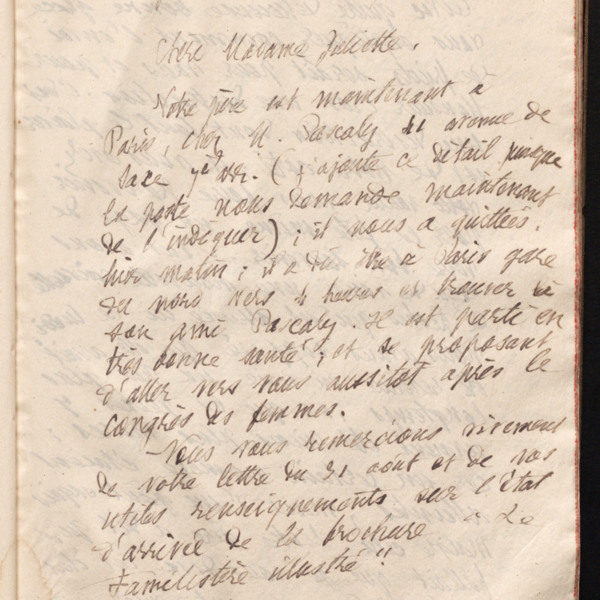 Chère Madame Juliette.
Notre père est maintenant à
Paris, chez M. Pascaly avenue de
Saxe 7e arr. (j'ajoute ce détail puisque
la poste nous demande maintenant
de l'indiquer) ; il nous a quittées
hier matin ; il a dû être à Paris gare
du nord vers 4 heures et trouver là
son ami Pascaly. Il est parti en
très bonne santé ; et se proposant
d'aller vers vous aussitôt après le
congrès des femmes.
Nous vous remercions vivement
de votre lettre du 31 août et de vos
utiles renseignements sur l'état
d'arrivée de la brochure "Le
Familistère illustré"